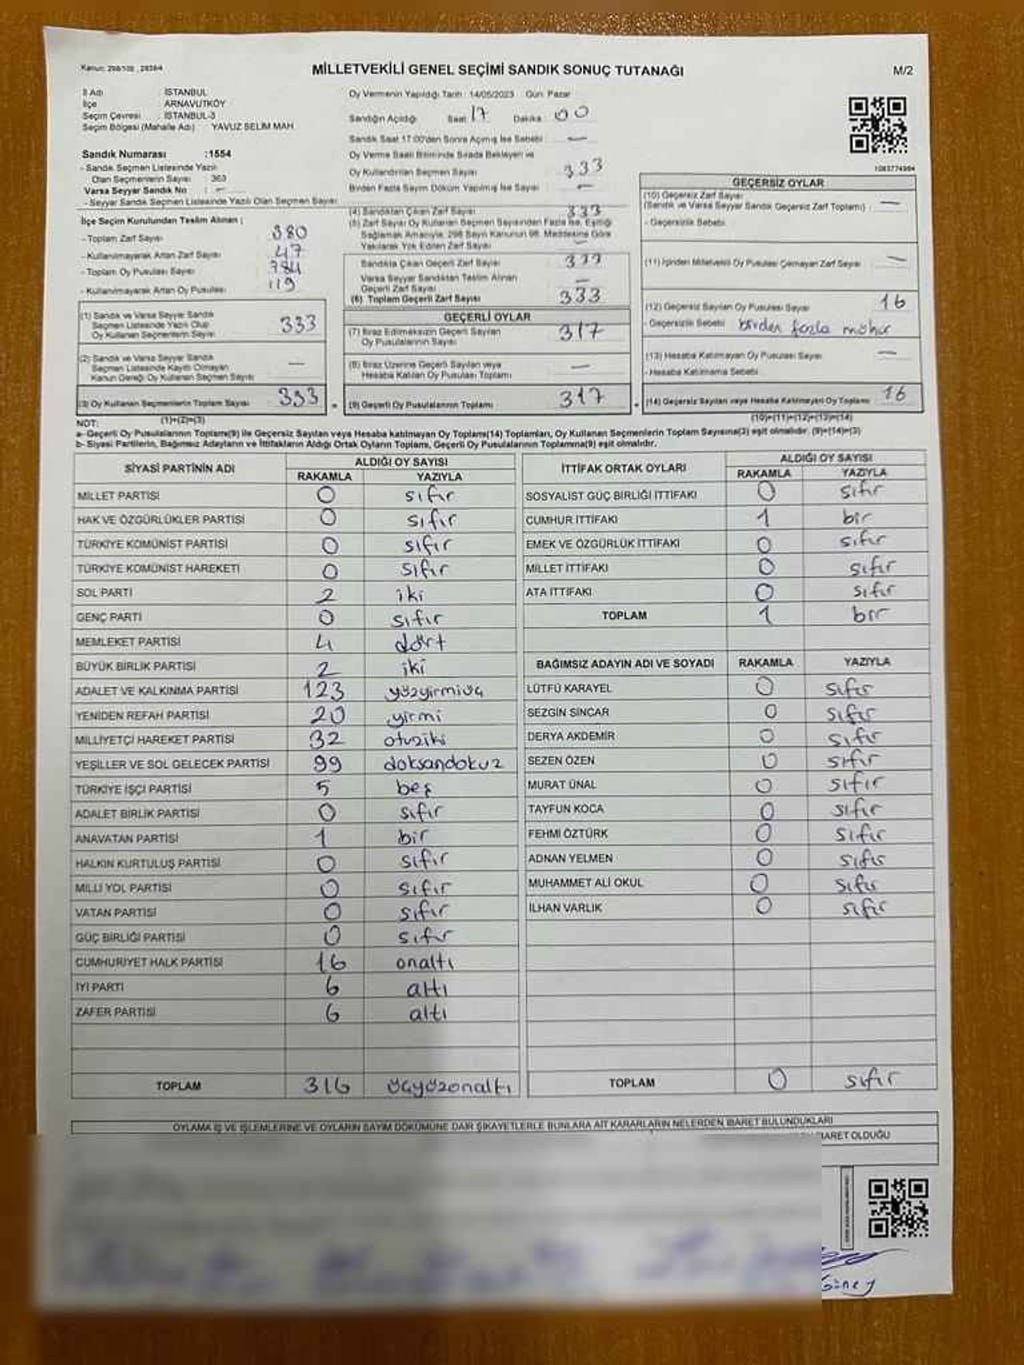 Kanun: 298/105 , 2839/4
MİLLETVEKİLİ GENEL SEÇİMİ SANDIK SONUÇ TUTANAĞI
M/2
İl Adı : İSTANBUL
İlçe : ARNAVUTKÖY
Seçim Çevresi : İSTANBUL-3
Seçim Bölgesi (Mahalle Adı) : YAVUZ SELİM MAH.
Sandık Numarası :1554
- Sandık Seçmen Listesinde Yazılı
Olan Seçmenlerin Sayısı : 363
Varsa Seyyar Sandık No : —
- Seyyar Sandık Seçmen Listesinde Yazılı Olan Seçmen Sayısı:
İlçe Seçim Kurulundan Teslim Alınan ;
- Toplam Zarf Sayısı 380
- Kullanılmayarak Artan Zarf Sayısı 47
- Toplam Oy Pusulası Sayısı
- Kullanılmayarak Artan Oy Pusulası 119
(1) Sandık ve Varsa Seyyar Sandık
Seçmen Listesinde Yazılı Olup
Oy Kullanan Seçmenlerin Sayısı 333
(2) Sandık ve Varsa Seyyar Sandık
Seçmen Listesinde Kayıtlı Olmayan
Kanun Gereği Oy Kullanan Seçmen Sayısı —
(3) Oy Kullanan Seçmenlerin Toplam Sayısı 333
(1)+(2)=(3)
Oy Vermenin Yapıldığı Tarih : 14/05/2023 Gün: Pazar
Sandığın Açıldığı Saat 17 Dakika 00
Sandık Saat 17:00'den Sonra Açılmış İse Sebebi : —
Oy Verme Saati Bitiminde Sırada Bekleyen ve
Oy Kullandırılan Seçmen Sayısı : 333
Birden Fazla Sayım Döküm Yapılmış İse Sayısı : —
(4) Sandıktan Çıkan Zarf Sayısı 333
(5) Zarf Sayısı Oy Kullanan Seçmen Sayısından Fazla İse, Eşitliği
Sağlamak Amacıyla, 298 Sayılı Kanunun 98. Maddesine Göre
Yakılarak Yok Edilen Zarf Sayısı —
Sandıkta Çıkan Geçerli Zarf Sayısı 333
Varsa Seyyar Sandıktan Teslim Alınan
Geçerli Zarf Sayısı —
(6) Toplam Geçerli Zarf Sayısı 333
GEÇERLİ OYLAR
(7) İtiraz Edilmeksizin Geçerli Sayılan
Oy Pusulalarının Sayısı 317
(8) İtiraz Üzerine Geçerli Sayılan veya
Hesaba Katılan Oy Pusulası Toplamı —
(9) Geçerli Oy Pusulalarının Toplamı 317
1083774964
GEÇERSİZ OYLAR
(10) Geçersiz Zarf Sayısı
(Sandık ve Varsa Seyyar Sandık Geçersiz Zarf Toplamı) : —
- Geçersizlik Sebebi :
(11) İçinden Milletvekili Oy Pusulası Çıkmayan Zarf Sayısı —
(12) Geçersiz Sayılan Oy Pusulası Sayısı 16
- Geçersizlik Sebebi birden fazla mühür
(13) Hesaba Katılmayan Oy Pusulası Sayısı —
- Hesaba Katılmama Sebebi
(14) Geçersiz Sayılan veya Hesaba Katılmayan Oy Toplamı 16
(10)+(11)+(12)+(13)=(14)
NOT:
a- Geçerli Oy Pusulalarının Toplamı(9) ile Geçersiz Sayılan veya Hesaba katılmayan Oy Toplamı(14) Toplamları, Oy Kullanan Seçmenlerin Toplam Sayısına(3) eşit olmalıdır. (9)+(14)=(3)
b- Siyasi Partilerin, Bağımsız Adayların ve İttifakların Aldığı Ortak Oyların Toplamı, Geçerli Oy Pusulalarının Toplamına(9) eşit olmalıdır.
SİYASİ PARTİNİN ADI ALDIĞI OY SAYISI
RAKAMLA YAZIYLA
MİLLET PARTİSİ 0 sıfır
HAK VE ÖZGÜRLÜKLER PARTİSİ 0 sıfır
TÜRKİYE KOMÜNİST PARTİSİ 0 sıfır
TÜRKİYE KOMÜNİST HAREKETİ 0 sıfır
SOL PARTİ 2 iki
GENÇ PARTİ 0 sıfır
MEMLEKET PARTİSİ 4 dört
BÜYÜK BİRLİK PARTİSİ 2 iki
ADALET VE KALKINMA PARTİSİ 123 yüzyirmiüç
YENİDEN REFAH PARTİSİ 20 yirmi
MİLLİYETÇİ HAREKET PARTİSİ 32 otuziki
YEŞİLLER VE SOL GELECEK PARTİSİ 99 doksandokuz
TÜRKİYE İŞÇİ PARTİSİ 5 beş
ADALET BİRLİK PARTİSİ 0 sıfır
ANAVATAN PARTİSİ 1 bir
HALKIN KURTULUŞ PARTİSİ 0 sıfır
MİLLİ YOL PARTİSİ 0 sıfır
VATAN PARTİSİ 0 sıfır
GÜÇ BİRLİĞİ PARTİSİ 0 sıfır
CUMHURİYET HALK PARTİSİ 16 onaltı
İYİ PARTİ 6 altı
ZAFER PARTİSİ 6 altı
TOPLAM 316 üçyüzonaltı
İTTİFAK ORTAK OYLARI ALDIĞI OY SAYISI
RAKAMLA YAZIYLA
SOSYALİST GÜÇ BİRLİĞİ İTTİFAKI 0 sıfır
CUMHUR İTTİFAKI 1 bir
EMEK VE ÖZGÜRLÜK İTTİFAKI 0 sıfır
MİLLET İTTİFAKI 0 sıfır
ATA İTTİFAKI 0 sıfır
TOPLAM 1 bir
BAĞIMSIZ ADAYIN ADI VE SOYADI RAKAMLA YAZIYLA
LÜTFÜ KARAYEL 0 sıfır
SEZGİN SİNCAR 0 sıfır
DERYA AKDEMİR 0 sıfır
SEZEN ÖZEN 0 sıfır
MURAT ÜNAL 0 sıfır
TAYFUN KOCA 0 sıfır
FEHMİ ÖZTÜRK 0 sıfır
ADNAN YELMEN 0 sıfır
MUHAMMET ALİ OKUL 0 sıfır
İLHAN VARLIK 0 sıfır
TOPLAM 0 sıfır
OYLAMA İŞ VE İŞLEMLERİNE VE OYLARIN SAYIM DÖKÜMÜNE DAİR ŞİKAYETLERLE BUNLARA AİT KARARLARIN NELERDEN İBARET BULUNDUKLARI
İBARET OLDUĞU
Güney